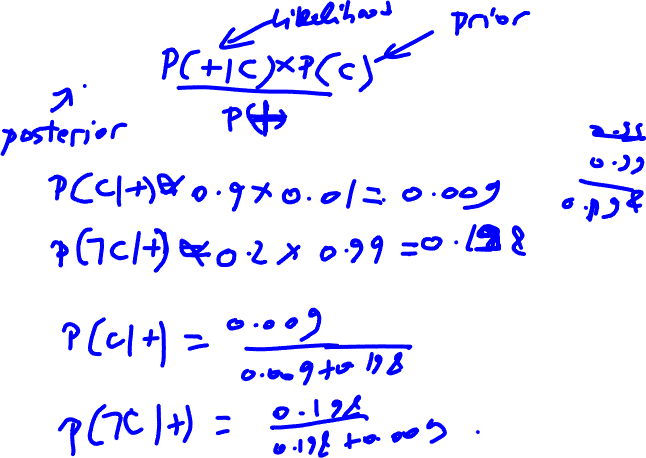 likelihood prior
P(+|C)×P(C)
P(+)
posterior
0.99
0.198
P(C|+) ∝ 0.9 × 0.01 = 0.009
P(¬C|+) ∝ 0.2 × 0.99 = 0.198
P(C|+) = 0.009
0.009+0.198
P(¬C|+) = 0.198
0.198+0.009.